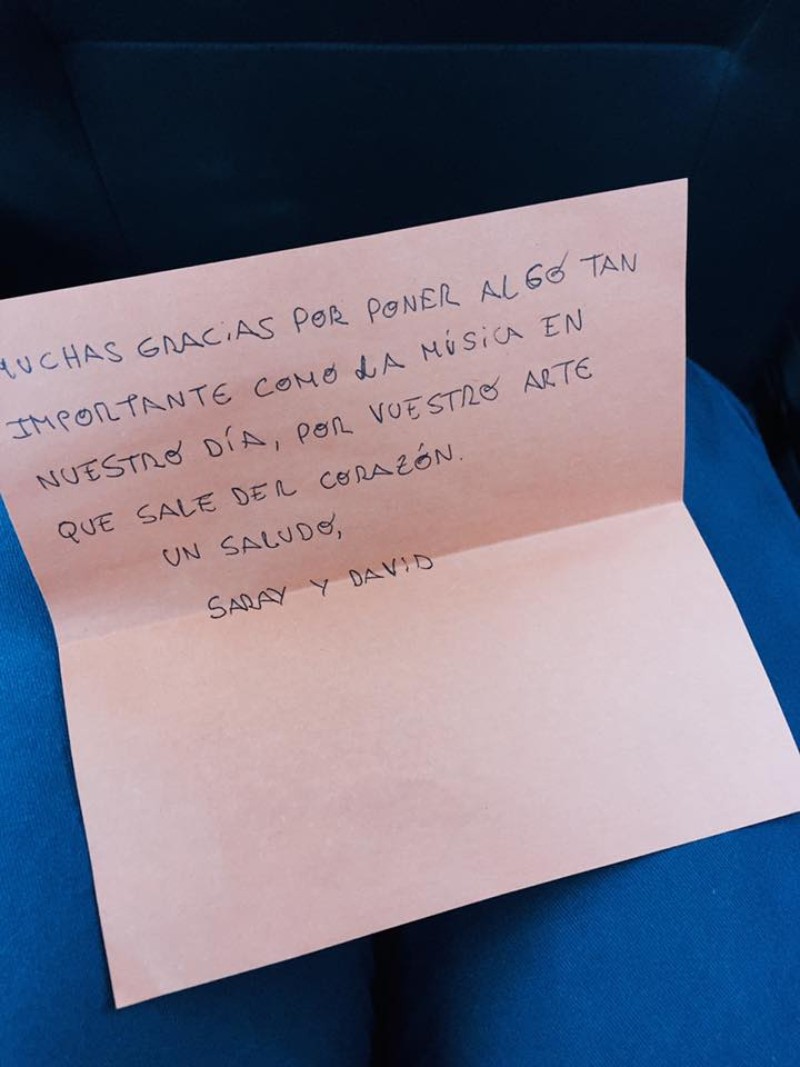 MUCHAS GRACIAS POR PONER ALGO TAN
IMPORTANTE COMO LA MÚSICA EN
NUESTRO DÍA, POR VUESTRO ARTE
QUE SALE DER CORAZÓN.
UN SALUDO,
SARAY Y DAVID